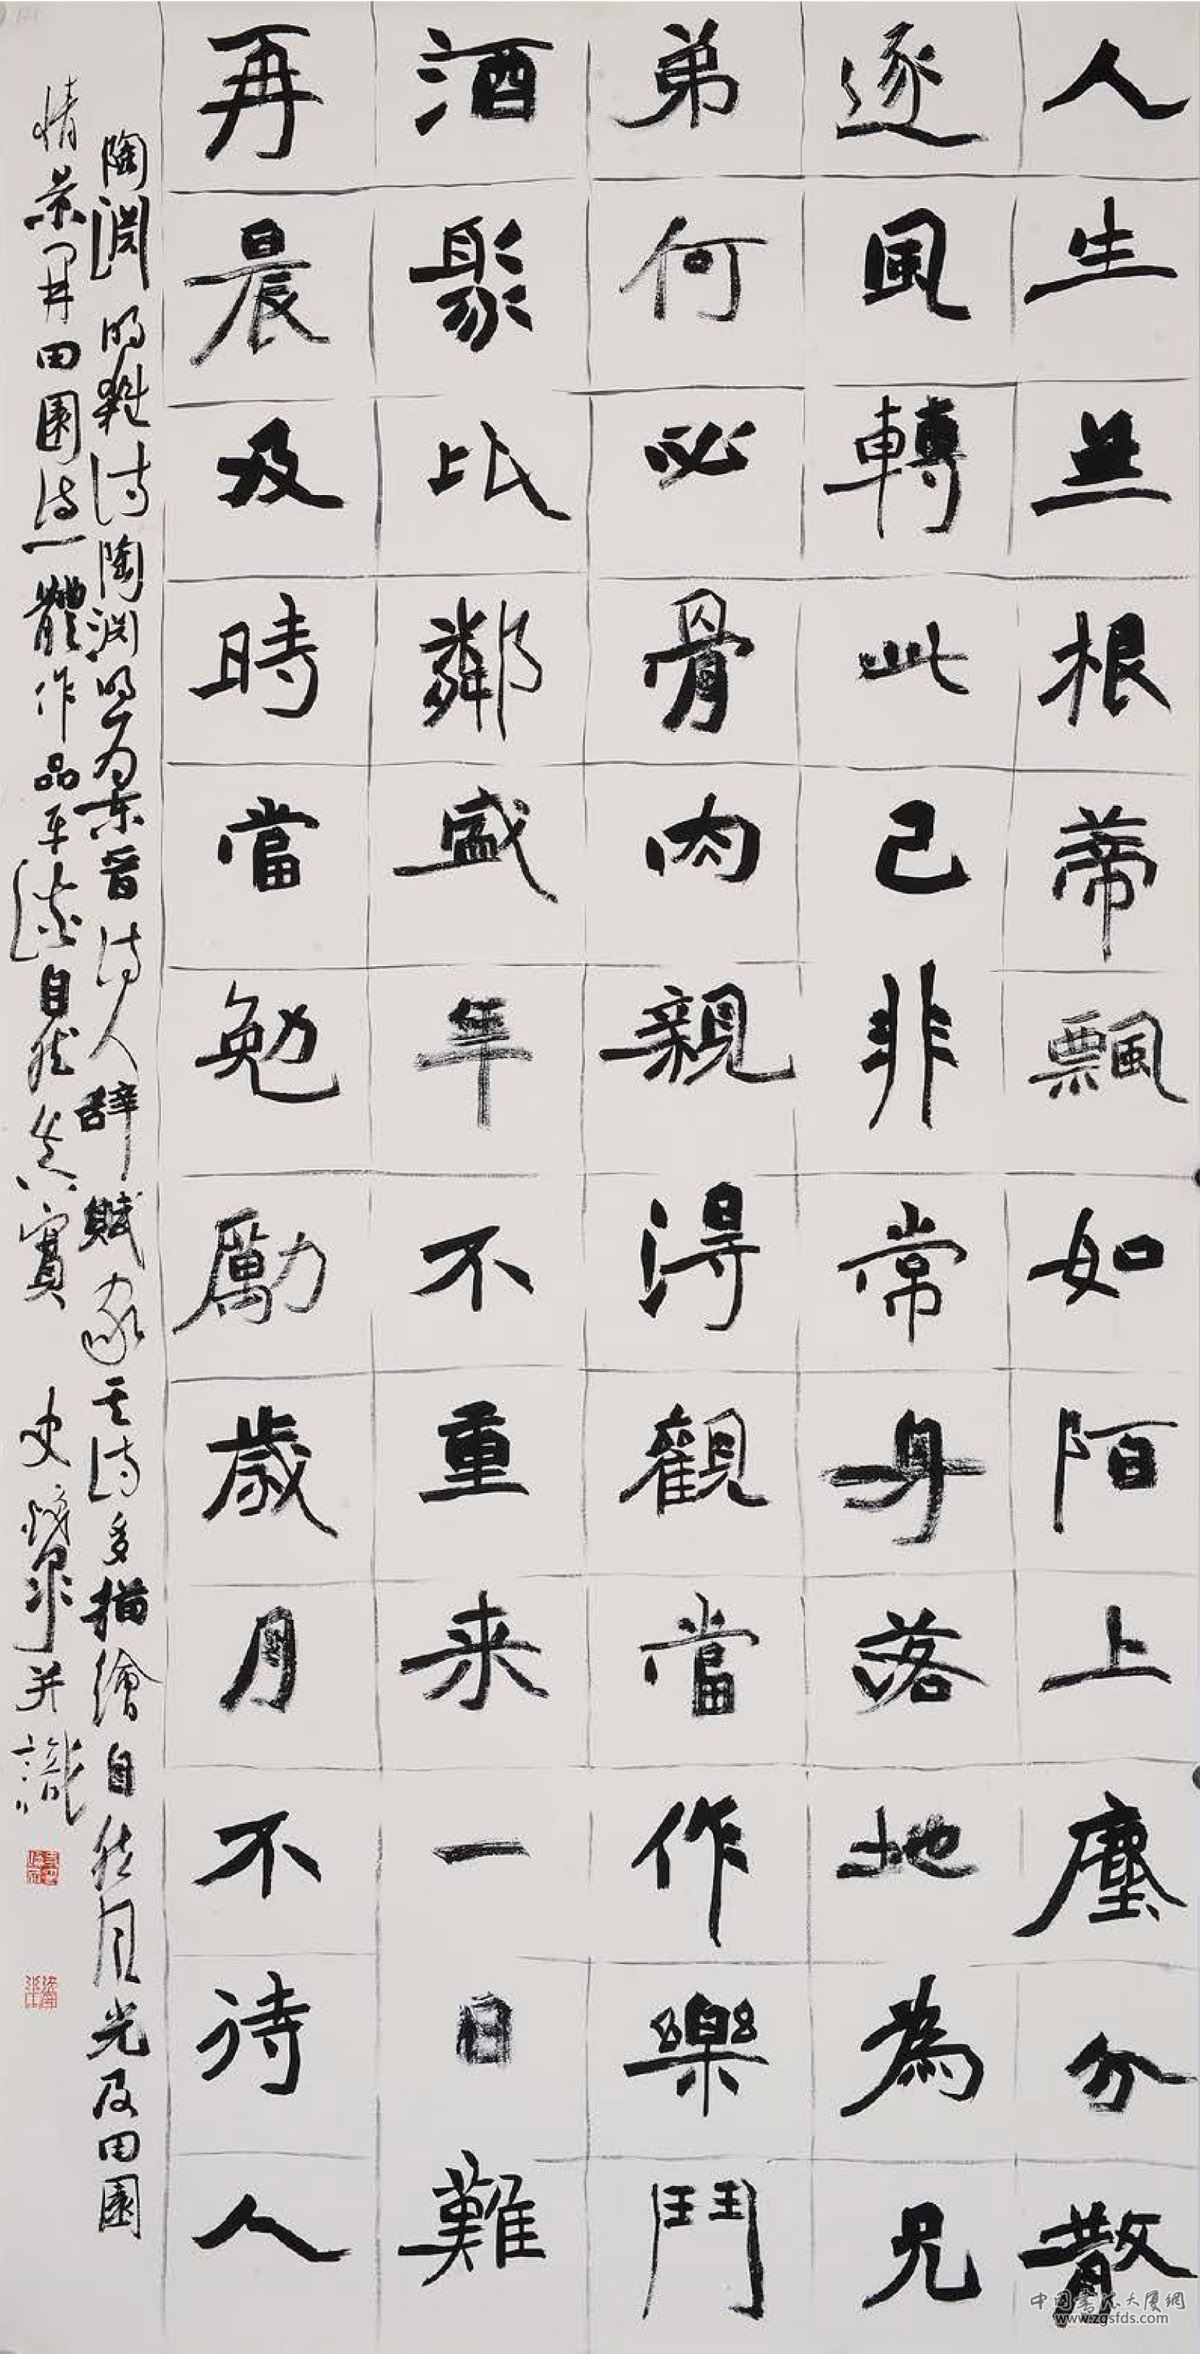 人生無根蒂飄如陌上塵分散
逐風轉此已非常身落地為兄
弟何必骨肉親得觀當作樂鬥
酒聚比鄰盛年不重来一日難
再晨及時當勉勵歲月不待人
陶淵明雜詩陶淵明為東晉詩人辞賦家其詩多描繪自然風光及田園
情景開田園詩一體作品平淡自然真實 史 并識
中国書法大厦網
www.zgsfds.com